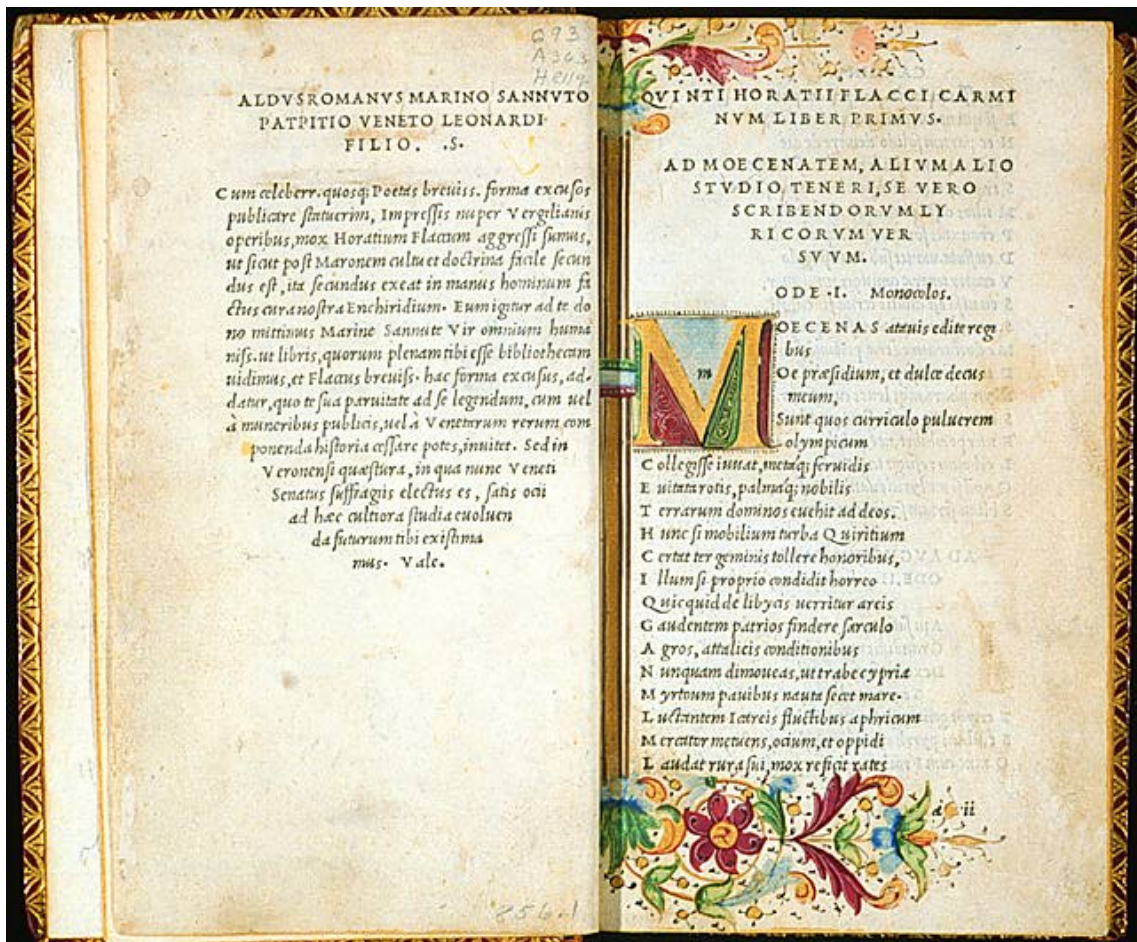 693
A363
H8119
ALDVS ROMANVS MARINO SANNVTO
PATRITIO VENETO LEONARDI
FILIO. .S.
Cum celeberr. quosq; Poetas breuiss. forma excusos
publicare statuerim, Impressis nuper Vergilianis
operibus, mox Horatium Flaccum aggressi sumus,
ut sicut post Maronem cultu et doctrina facile secun
dus est, ita secundus exeat in manus hominum fa
ctus cura nostra Enchiridium. Eum igitur ad te do
no mittimus Marine Sannute Vir omnium huma
niss. ut libris, quorum plenam tibi esse bibliothecam
uidimus, et Flaccus breuiss. hac forma excusus, ad,
datur, quo te sua paruitate ad se legendum, cum uel
à muneribus publicis, uel à Venetarum rerum com
ponenda historia cessare potes, inuitet. Sed in
Veronensi quæstura, in qua nunc Veneti
Senatus suffragiis electus es, satis ocii
ad hæc cultiora studia euoluen
da futurum tibi existima
mus. Vale.
256.1
QVINTI HORATII FLACCI CARMI
NVM LIBER PRIMVS.
AD MOECENATEM, ALIVM ALIO
STVDIO TENERI, SE VERO
SCRIBENDORVM LY
RICORVM VER
SVVM.
ODE .I. Monocolos.
MOECENAS atauis edite regi
bus
Oe præsidium, et dulce decus
meum,
Sunt quos curriculo puluerem
olympicum
Collegisse iuuat, metaq; feruidis
Euitata rotis, palmaq; nobilis
Terrarum dominos euehit ad deos.
Hunc si mobilium turba Quiritium
Certat ter geminis tollere honoribus,
Illum si proprio condidit horreo
Quicquid de libycis uerritur areis
Gaudentem patrios findere sarculo
Agros, attalicis conditionibus
Nunquam dimoueas, ut trabe cypria
Myrtoum pauibus nauta secet mare.
Luctantem Icareis fluctibus aphricum
Mercator metuens, ocium, et oppidi
Laudat rura sui, mox reficit rates
a ii